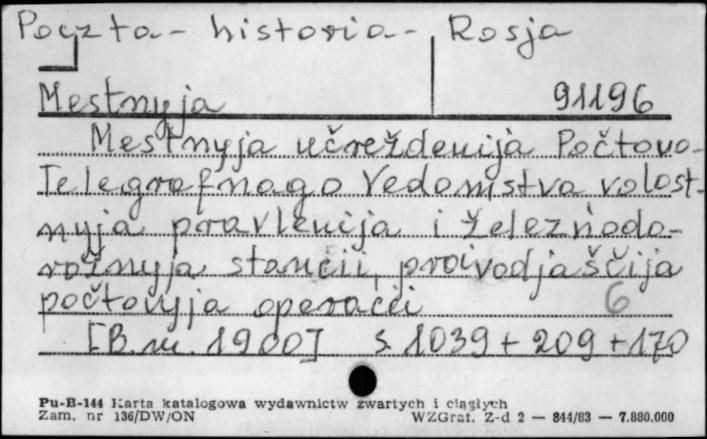 Poczta - historia - Rosja
Mestnyja 91196
Mestnyja učreždenija Počtovo-
Telegrafnago Vedomstva volost-
nyja pravlenija i železnodo-
rožnyja stancii, proivodjaščija
počtovyja operacii 6
[B.m. 1900] s. 1039 + 209 + 170
Pu-B-144 Karta katalogowa wydawnictw zwartych i ciągłych
Zam. nr 136/DW/ON WZGraf. Z-d 2 — 844/83 — 7.880.000